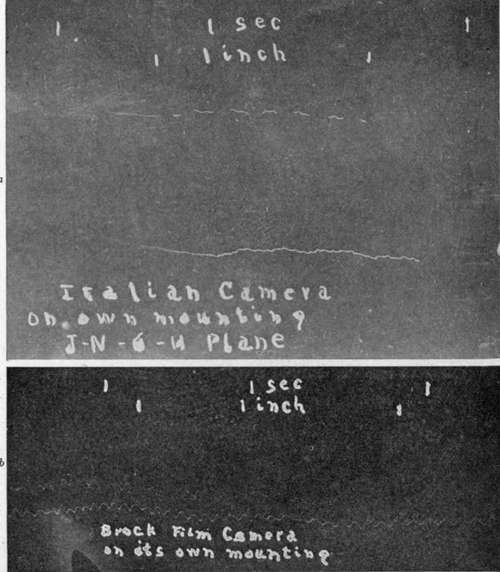 1 sec
1 inch
a
Italian Camera
on own mounting
J-N-6-H Plane
1 sec
1 inch
b
Brock Film Camera
on its own mounting